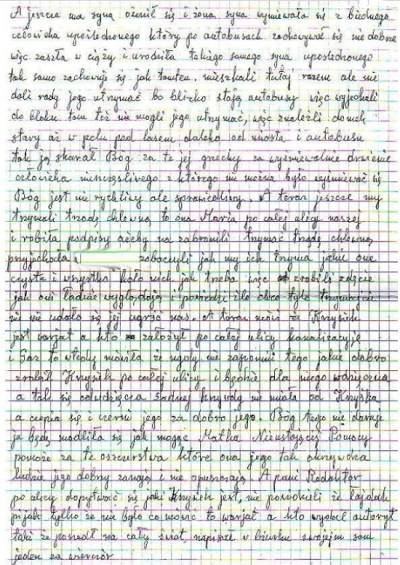 A jeszcze ma syna ożenił się i żona syna wyśmiewała się z biednego
człowieka upośledzonego który po autobusach zachowywał się nie dobrze
więc zaszła w ciążę i urodziła takiego samego syna upośledzonego
tak samo zachowuje się jak tamten. mieszkali tutaj razem ale nie
dali rady jego utrzymać bo blisko stają autobusy więc wyjechali
do bloku tam też nie mogli jego utrzymać, więc znaleźli domek
stary aż w polu pod lasem daleko od miasta i autobusu
tak ją skarał Bóg za te jej grzechy za wyśmiewanie drwienie
człowieka nieszczęśliwego z którego nie można było wyśmiewać się
Bóg jest nie rychliwy ale sprawiedliwy. A teraz jeszcze my
trzymali trzodę chlewną to ona Maria po całej ulicy naszej
i robiła podpisy żeby na zabronili trzymać trzodę chlewną
przyjechała zobaczyli jak my ich trzyma jakie one
czyste i wszystko było u ich jak trzeba więc zrobili zdjęcie
jak oni ładnie wyglądają i powiedzieli
nie udało się jej. A teraz mówi że Krzysiek
jest wariat a kto założył po całej ulicy kanalizację
i Gaz to wtedy mówiła że nigdy nie zapomni tego jakie dobro
zrobił Krzysiek po całej ulicy i będzie dla niego wdzięczna
a tak się odwdzięcza żadnej krzywdy nie miała od Krzyśka
a czepia się i czerni jego za dobro jego. Bóg tego nie daruje
ja będę modliła się jak mogąc Matka Nieustającej Pomocy
pomoże za te oszczerstwa które ona jego tak okrywała
ludzie jego dobry znają i nie
po ulicy dopytywać się jaki Krzysiek jest, nie powiedzieli że łajdak
pijak tylko że nie było co mówić to wariat a kto wyrobił autoryt
taki że poszedł na cały świat
jeden za wierzcior